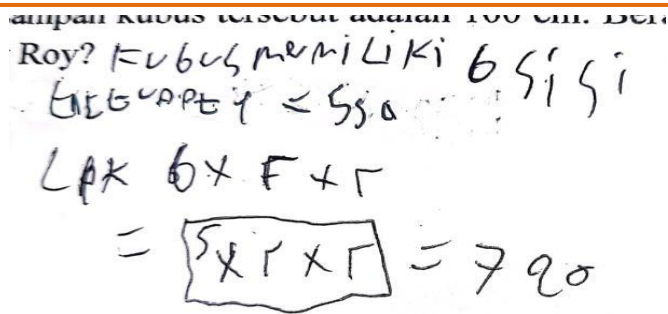 ampah kubus tersebut adalah 100 cm. Ber
Roy? Kubus memiliki 6 sisi
= 550
LPK 6 x r x r
= 5 x r x r = 720